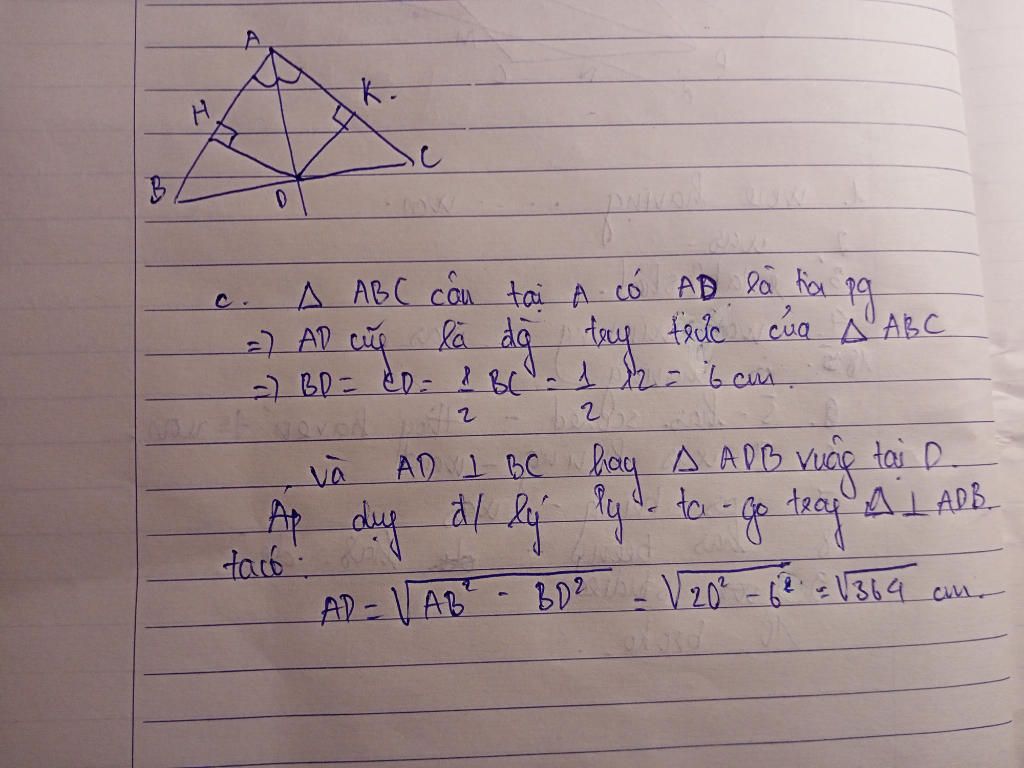 A
H
K.
B
D
C
c. Δ ABC cân tại A có AD là tia pg
=> AD cũg là đg trug trực của Δ ABC
=> BD = CD = 1/2 BC = 1/2 12 = 6 cm.
và AD ⊥ BC hay Δ ADB vuôg tại D.
Áp dụg đ/ lý Py - ta - go trog Δ ⊥ ADB.
ta có :
AD = √AB² - BD² = √20² - 6² = √364 cm.